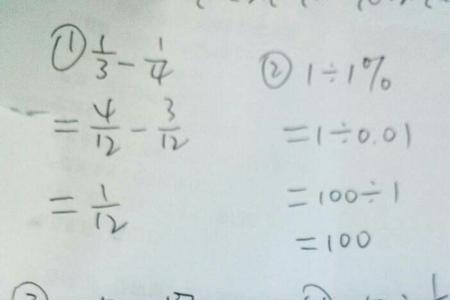 ① 1/3 - 1/4
= 4/12 - 3/12
= 1/12
② 1÷1%
=1÷0.01
=100÷1
=100